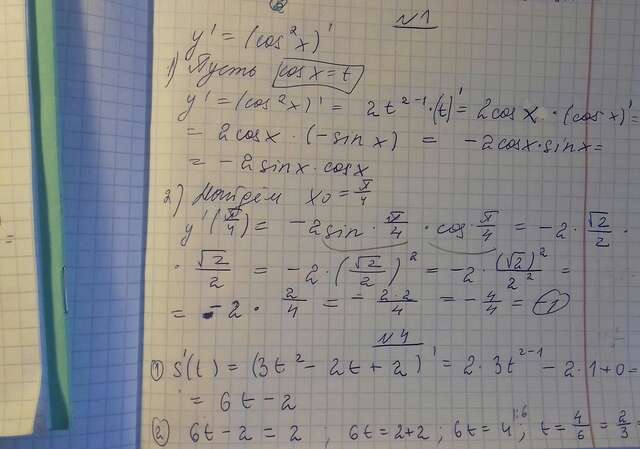 N1
y' = (cos²x)'
1) Пусть cosx = t
y' = (cos²x)' = 2t²⁻¹·(t)' = 2cosx·(cosx)' =
= 2cosx·(-sinx) = -2cosx·sinx =
= -2sinx·cosx
2) Найдём x₀ = π/4
y'(π/4) = -2sin·π/4·cosπ/4 = -2·√2/2·
·√2/2 = -2·(√2/2)² = -2·(√2)²/2² =
= -2·2/4 = -2·2/4 = -4/4 = -1
N4
① S'(t) = (3t² - 2t + 2)' = 2·3t²⁻¹ - 2·1+0 =
= 6t - 2
② 6t - 2 = 2 ; 6t = 2+2 ; 6t = 4 |:6 ; t = 4/6 = 2/3 =